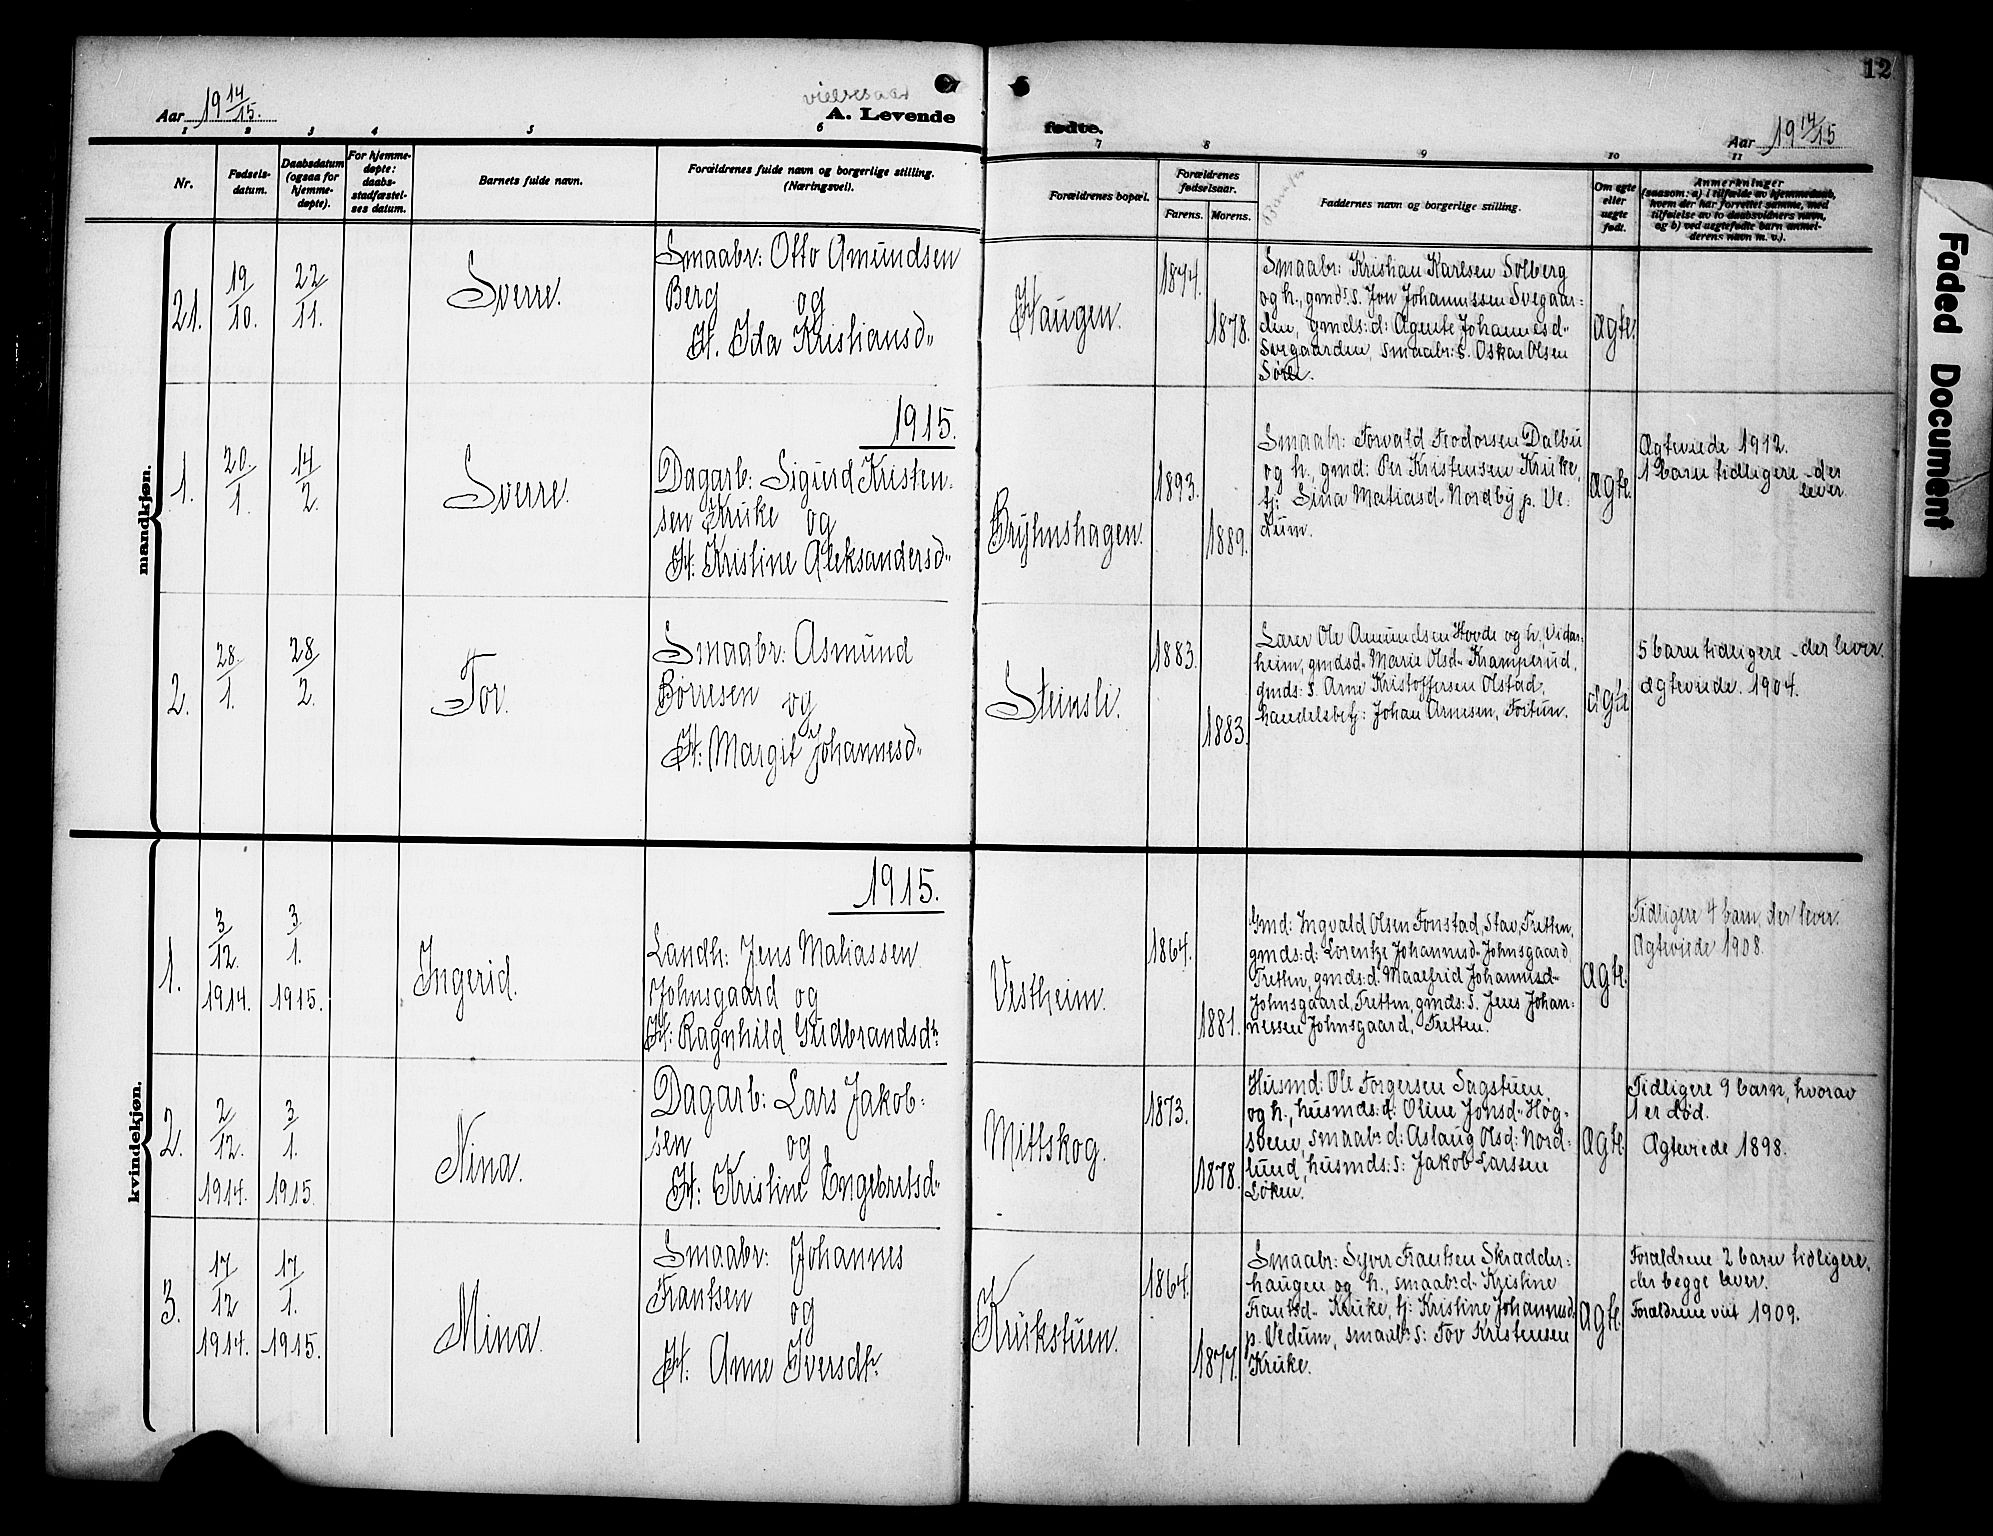 12
Aar 19 14/15.
vielsesaar
A. Levende
fødte.
Aar 19 14/15
1 2 3 4 5 6 7 8 9 10 11
Nr.
Fødsels-
datum.
Daabsdatum
(ogsaa for
hjemme-
døpte).
For hjemme-
døpte:
daabs-
stadfæstel-
ses datum.
Barnets fulde navn.
Forældrenes fulde navn og borgerlige stilling.
(Næringsvei).
Forældrenes bopæl.
Forældrenes
fødselsaar.
Farens. Morens.
Faddernes navn og borgerlige stilling.
Om egte
eller
uegte
født.
Anmerkninger
(saasom: a) i tilfælde av hjemmedaab,
hvem der har forrettet samme, med
tilføielse av to daabsvidners navn,
og b) ved uegtefødte barn anmel-
derens navn m. v.).
mandkjøn.
21.
19/10.
22/11.
Sverre.
Smaabr: Otto Amundsen
Berg og
H. Ida Kristiansd„
Haugen.
1874.
1878.
Smaabr: Kristian Karlsen Solberg
og h., gmds: s. Jon Johannessen Svegaar-
den, gmds: d: Agente Johannesd„
Svegaarden, smaabr: s. Oskar Olsen
Ægte.
1915.
1.
20./1.
14/2.
Sverre.
Dagarb: Sigurd Kristen-
sen Kruke og
H: Kristine Aleksandersd„
Bryhnshagen.
1893.
1889.
Smaabr: Torvald Teodorsen Dalbu
og h., gmd: Per Kristensen Kruke,
tj: Lina Matiasd Nordby p. Ve-
dum.
Ægte.
Ægteviede 1912.
1 barn tidligere - der
lever.
2.
28./1.
28/2.
Tor.
Smaabr: Asmund
Børresen og
H: Margit Johannesd„
Steinsli.
1883.
1883.
Lærer Ole Amundsen Hovde og h., Vidar-
heim, gmdsd„ Marie Olsd„ Kramperud,
gmds: s. Arne Kristoffersen Olstad,
handelsbetj: Johan Arnesen, Fortun.
Ægte
5 barn tidligere - der lever.
Ægteviede. 1904.
kvindekjøn.
1915.
1.
3/12.
1914.
3./1.
1915.
Ingerid.
Landh: Jens Matiassen
Johnsgaard og
H: Ragnhild Gudbrandsdtr
Vestheim.
1864.
1881.
Gmd: Ingvald Olsen Fonstad, Stav, Tretten,
gmds: d: Lorentze Johannesd„ Johnsgaard,
Tretten, gmds: d. Maalfrid Johannesd„
Johnsgaard, Tretten, gmds: s. Jens Johan-
nessen Johnsgaard, Tretten.
Ægte.
Tidligere 4 barn, der lever.
Ægteviede 1908.
2.
2/12.
1914.
3/1.
1915.
Nina.
Dagarb: Lars Jakob-
sen og
H: Kristine Engebretsd„
Mittskog.
1873.
1878.
Husmd: Ole Torgersen Sagstuen
og h., husmds: d: Oline Jonsd„ Høg-
sveen, smaabr: d: Aslaug Olsd: Nord-
lund, husmds: s: Jakob Larssen
Løken.
Ægte
Tidligere 9 barn, hvorav
1 er død.
Ægteviede 1898.
3.
17/12
1914.
17/1.
1915.
Mina.
Smaabr: Johannes
Frantsen og
H: Anne Iversdtr.
Krukstuen.
1864.
1877.
Smaabr: Syver Frantsen Skrædder-
haugen og h., smaabrd„ Kristine
Frantsd„ Kruke, tj: Kristine Johannesd
p. Vedum, smaabr: s: Tov Kristensen
Kruke.
Ægte.
Forældrene 2 barn tidligere,
der begge lever.
Forældrene viet 1909.
Faded Document